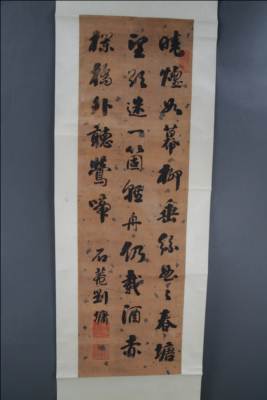 曉煙如幕柳垂絲春塘
望欲迷一箇舟仍載酒赤
欄橋外聽鶯啼
石菴劉墉